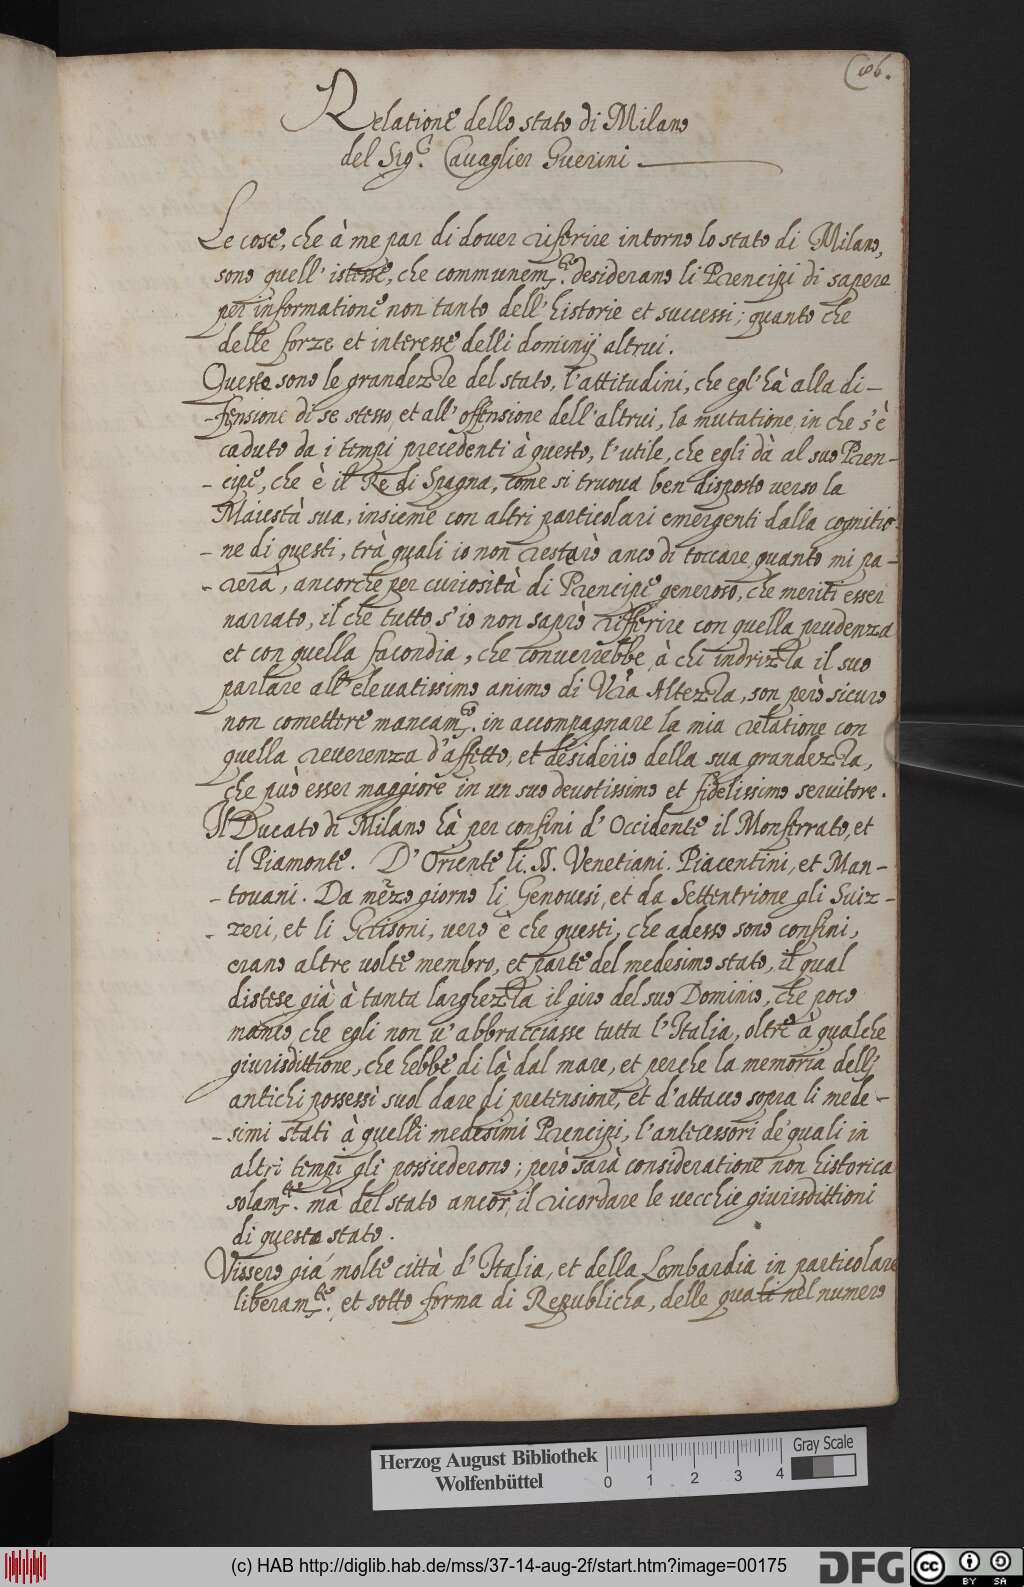 186.
Relatione dello stato di Milano
del Sig.r Cavaglier Guerini
Le cose, che à me par di dover riferire intorno lo stato di Milano,
sono quell' istesse, che communem.te desiderano li Prencipi di sapere
per informatione non tanto dell' historie et successi; quanto che
delle forze et interesse delli dominij altrui.
Queste sono le grandezze del stato, l'attitudini, che egl' hà alla di-
-fensione di se stesso, et all' offensione dell'altrui, la mutatione in che s'è
caduto da i tempi precedenti à questo, l'utile, che egli dà al suo Pren-
-cipe, che è il Re di Spagna, come si truova ben disposto verso la
Maiestà sua, insieme con altri particolari emergenti dalla cognitio-
-ne di questi, trà quali io non restarò anco di toccare quanto mi pa-
-rerà, ancorche per curiosità di Prencipe generoso, che meriti esser
narrato, il che tutto s'io non saprò rifferire con quella prudenza
et con quella facondia, che converrebbe à chi indrizza il suo
parlare all'elevatissimo animo di Vra Altezza, son però sicuro
non comettere mancam.to in accompagnare la mia relatione con
quella reverenza d'affetto, et desiderio della sua grandezza,
che può esser maggiore in un suo devotissimo et fidelissimo servitore.
Il Ducato di Milano hà per confini d'Occidente il Monferrato, et
il Piamonte. D'Oriente li SS. Venetiani. Piacentini, et Man-
-tovani. Da mezo giorno li Genovesi, et da Settentrione gli Suiz-
-zeri, et li Grisoni, vero è che questi, che adesso sono confini,
erano altre volte membro, et parte del medesimo stato, il qual
distese già à tanta larghezza il giro del suo Dominio, che poco
manco che egli non v'abbracciasse tutta l'Italia, oltre à qualche
giurisdittione, che hebbe di là dal mare, et perche la memoria delli
antichi possessi suol dare di pretensione, et d'attacco sopra li mede-
-simi stati à quelli medesimi Prencipi, l'antecessori de' quali in
altri tempi gli possiederono; però sarà consideratione non historica
solam.te mà del stato ancor, il ricordare le vecchie giurisdittioni
di questo stato.
Vissero già molte città d'Italia, et della Lombardia in particolare
liberam.te et sotto forma di Republicha, delle quali nel numero
Herzog August Bibliothek
Wolfenbüttel
0 1 2 3 4
Gray Scale
(c) HAB http://diglib.hab.de/mss/37-14-aug-2f/start.htm?image=00175
DFG
cc BY SA